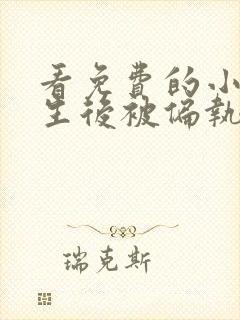 看免費的小
生後被偏執
瑞克斯